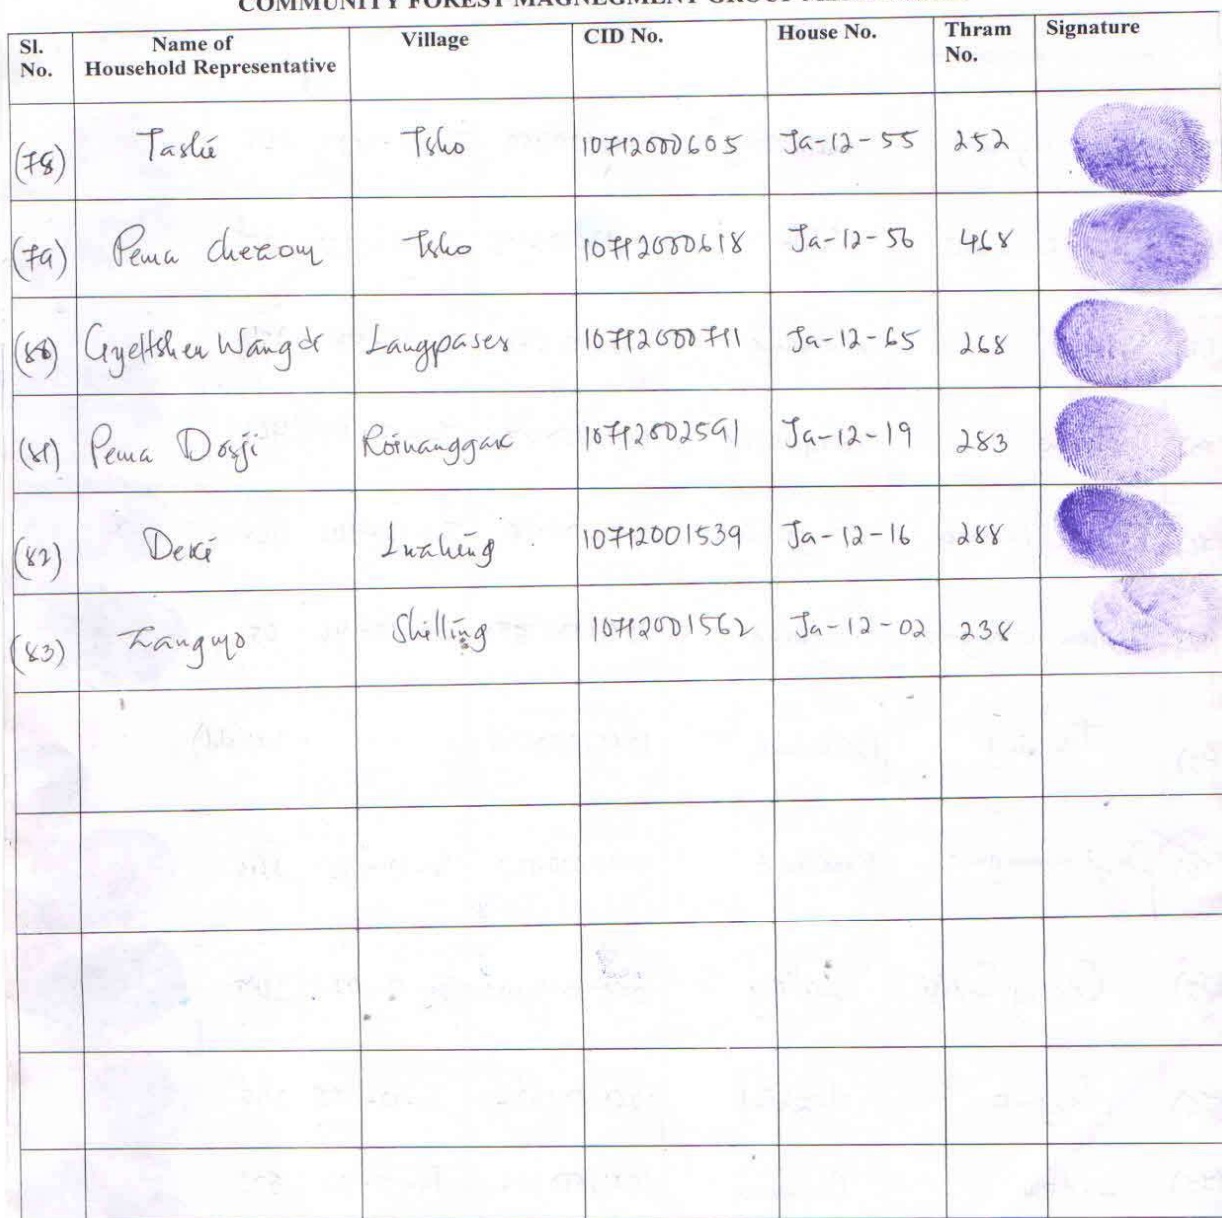 COMMUNITY FOREST MAGNEGMENT GROUP
Sl. No. Name of Household Representative Village CID No. House No. Thram No. Signature
(78) Tashi Tsho 10712000605 Ja-12-55 252
(79) Pema Tsho 10712000618 Ja-12-56 468
(80) Gyeltshen Wangdi Langpasey 10712000711 Ja-12-65 268
(81) Pema Dorji 10712002591 Ja-12-19 283
(82) Deki 10712001539 Ja-12-16 288
(83) Zangmo Shelling 10712001562 Ja-12-02 238